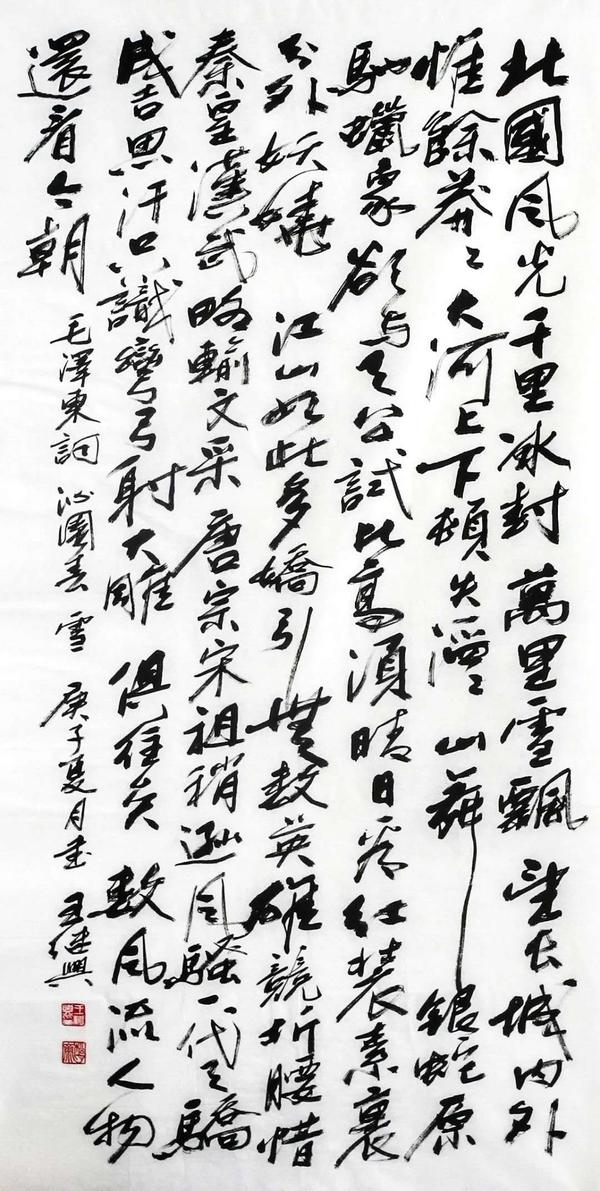 北國风光千里冰封萬里雪飄望长城内外
惟餘莽〻大河上下頓失滔〻山舞銀蛇原
馳蠟象欲与天公試比高須晴日看红装素裹
分外妖嬈江山如此多嬌引無数英雄競折腰惜
秦皇漢武略輸文采唐宗宋祖稍遜风騷一代天驕
成吉思汗只識彎弓射大雕俱往矣数风流人物
還看今朝 毛澤東詞 沁園春 雪 庚子夏月書 王继興